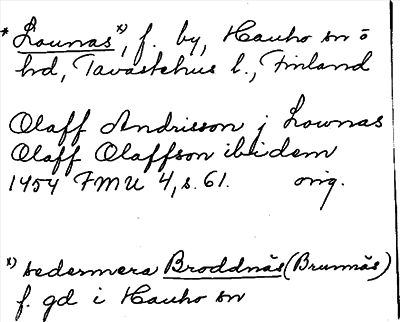 * Lounas x), f. by, Hauho sn o
hd, Tavastehus l., Finland
Olaff Andrisson j Lownas
Olaff Olaffson ibidem
1454 FMU 4, s. 61. orig.
x) sedermera Broddnäs (Brunnäs)
f. gd i Hauho sn